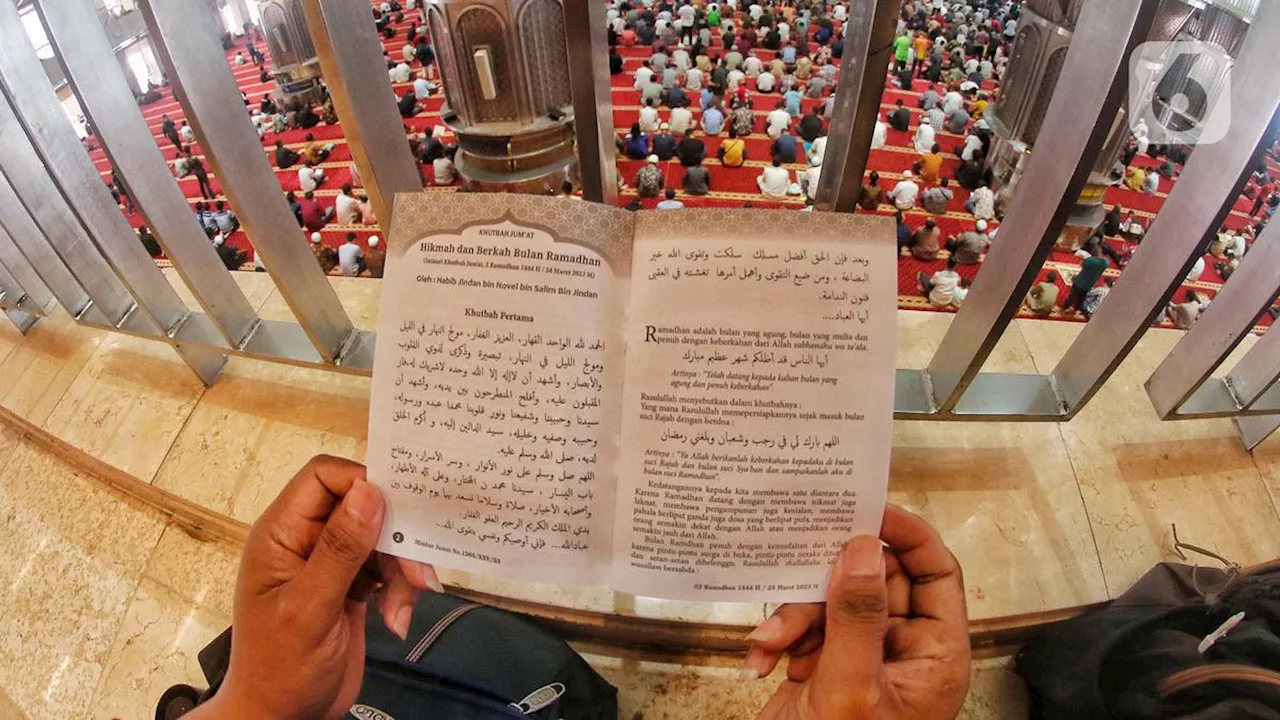 KHUTBAH JUM'AT
Hikmah dan Berkah Bulan Ramadhan
(Intisari Khutbah Jum'at, 2 Ramadhan 1444 H / 24 Maret 2023 M)
Oleh : Habib Jindan bin Novel bin Salim Bin Jindan
Khutbah Pertama
الحمد لله الواحد القهار، العزيز الغفار، مولج النهار في الليل
ومولج الليل في النهار، تبصرة وذكرى لذوي القلوب
والأبصار، وأشهد أن لاإله إلا الله وحده لاشريك له،فاز
المقبلون عليه، وأفلح المنطرحون بين يديه، وأشهد أن
سيدنا وحبيبنا وشفيعنا ونور قلوبنا محمدا عبده ورسوله،
وحبيبه وصفيه وخليله، سيد الدالين إليه، و أكرم الخلق
لديه، صلى الله وسلم عليه.
اللهم صل وسلم على نور الأنوار ، وسر الأسرار، ومفتاح
باب اليسار ، سيدنا محمد ن المختار، وعلى آله الأطهار،
وأصحابه الأخيار، صلاة وسلاما نسعد بهما يوم الوقوف بين
يدي الملك الكريم الرحيم العفو الغفار.
عبادالله... فإني أوصيكم ونفسي بتقوى الله...
2
Mimbar Jumat No.
وبعد فإن الحق أفضل مسلك سلكت وتقوى الله خير
البضاعة ، ومن ضيع التقوى وأهمل أمرها تغشته في العقبى
فنون الندامة.
أيها العباد....
Ramadhan adalah bulan yang agung, bulan yang mulia dan
penuh keberkahan dari Allah subhanahu wa ta'ala.
أيها الناس قد أظلكم شهر عظيم مبارك
Artinya : "Telah datang kepada kalian bulan yang
agung dan penuh keberkahan".
Rasulullah menyebutkan dalam khutbahnya :
Yang mana Rasulullah memepersiapkannya sejak masuk bulan
suci Rajab dengan berdoa :
اللهم بارك لي في رجب وشعبان وبلغني رمضان
Artinya : "Ya Allah berikanlah keberkahan kepadaku di bulan
suci Rajab dan bulan suci Sya'ban dan sampaikanlah aku di
bulan suci Ramadhan".
Kedatangannya kepada kita membawa satu diantara dua.
Karena Ramadhan datang dengan membawa nikmat juga
laknat, membawa pengampunan juga kesialan, membawa
pahala berlipat ganda juga dosa yang berlipat pula, menjadikan
orang semakin dekat dengan Allah atau menjadikan orang
semakin jauh dari Allah.
Bulan Ramdhan penuh dengan kemudahan dari Allah
karena pintu-pintu surga di buka, pintu-pintu neraka
dan setan-setan dibelenggu. Rasulullah shallallahu
wasallam bersabda :
02 Ramadhan 1444 H / 24 Maret 2023 M
6